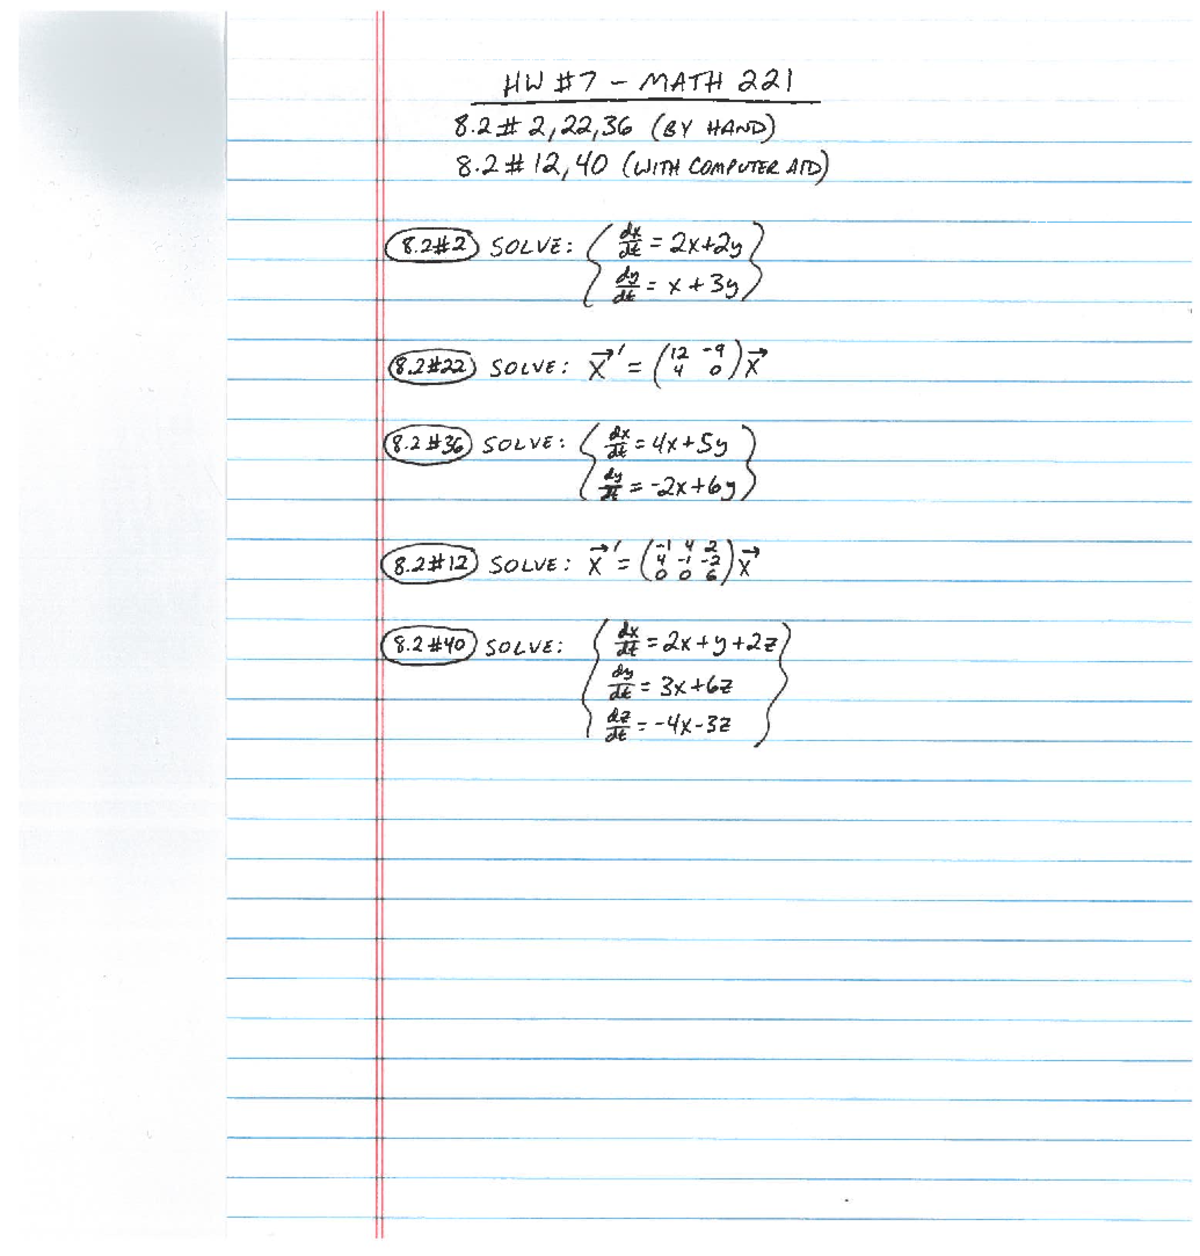 HW #7 - MATH 221
8.2 # 2, 22, 36 (BY HAND)
8.2 # 12, 40 (WITH COMPUTER AID)
8.2#2 SOLVE: { dx/dt = 2x+2y }
{ dy/dt = x + 3y }
8.2#22 SOLVE: X⃗' = (12 -9; 4 0) X⃗
8.2#36 SOLVE: { dx/dt = 4x+5y }
{ dy/dt = -2x+6y }
8.2#12 SOLVE: X⃗' = (-1 4 2; 4 -1 -2; 0 0 6) X⃗
8.2#40 SOLVE: { dx/dt = 2x+y+2z }
{ dy/dt = 3x+6z }
{ dz/dt = -4x-3z }